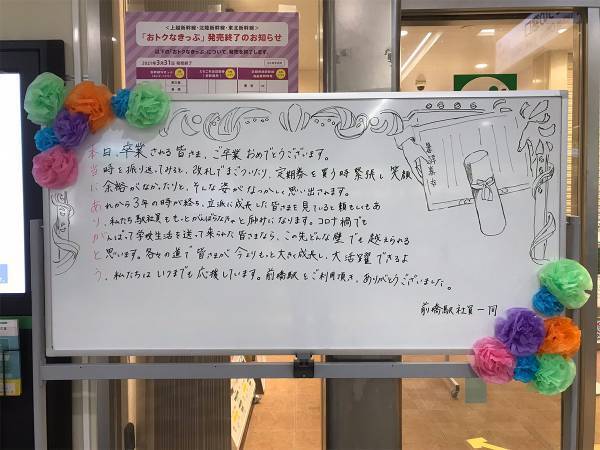 <上越新幹線・北陸新幹線・東北新幹線>
「おトクなきっぷ」発売終了のお知らせ
以下の「おトクなきっぷ」について、発売を終了します。
2021年3月31日
本日、卒業される皆さま、ご卒業おめでとうございます。
当時を振り返ってみると、改札でまごついたり、定期券を買う時緊張し笑顔
に余裕がなかったりと、そんな姿がなつかしく思い出されます。
あれから3年の時が経ち、立派に成長した皆さまを見ていると頼もしくもあ
り、私たち駅社員ももっとがんばらなきゃと励みになります。コロナ禍でも
がんばって学校生活を送って来られた皆さまなら、この先どんな壁でも越えられる
と思います。各々の道で皆さまが今よりもっと大きく成長し、大活躍できるよ
う、私たちはいつまでも応援しています。前橋駅をご利用頂き、ありがとうございました。
前橋駅社員一同